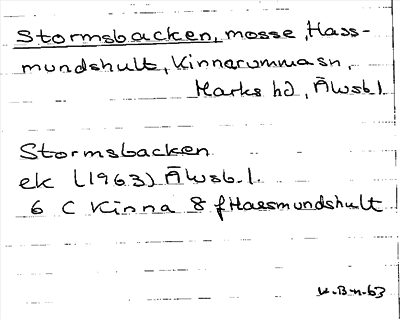 Stormsbacken, mosse, Hass-
mundshult, Kinnarumma sn,
Marks hd, Älvsb.l.
Stormsbacken
ek (1963) Älvsb.l.
6 C Kinna 8 f Hassmundshult